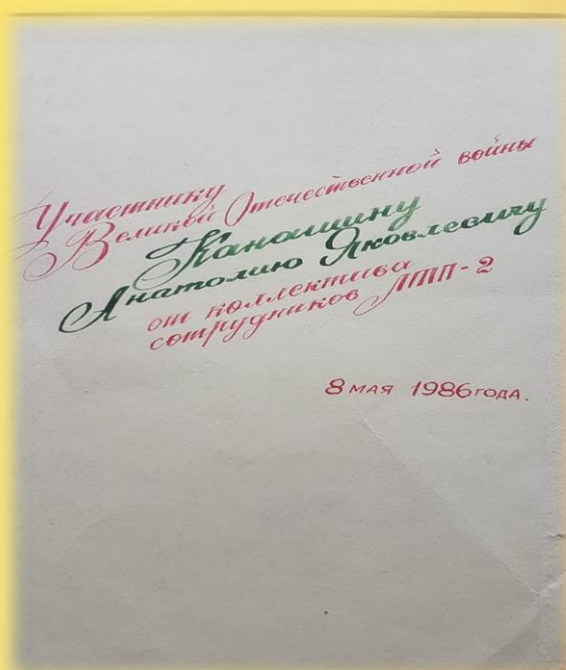 Участнику
Великой Отечественной войны
Канашину
Анатолию Яковлевичу
от коллектива
сотрудников ЛТП-2
8 мая 1986 года.